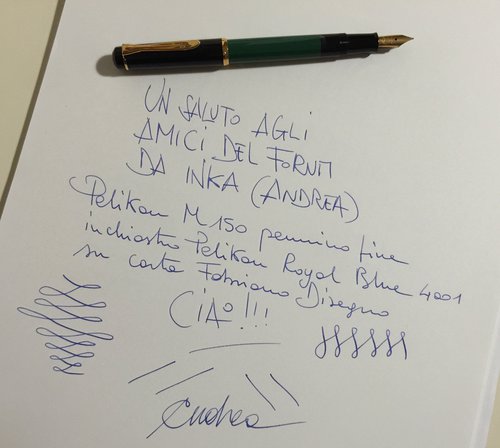 UN SALUTO AGLI
AMICI DEL FORUM
DA INKA (ANDREA)
Pelikan M150 pennino fine
inchiostro Pelikan Royal Blue 4001
su carta Fabriano Disegno
CIAO!!!
Andrea